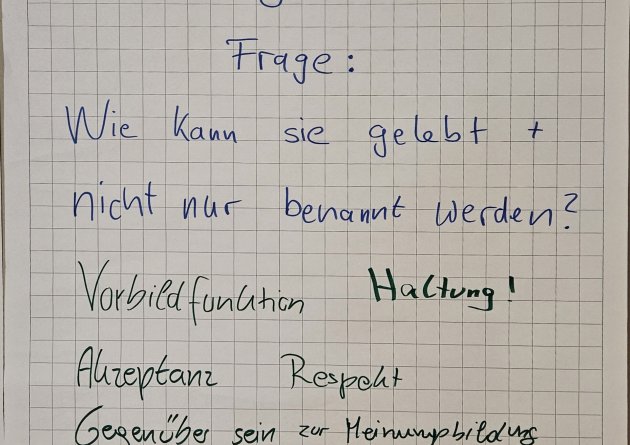 Frage:
Wie kann sie gelebt +
nicht nur benannt werden?
Vorbildfunktion Haltung!
Akzeptanz Respekt
Gegenüber sein zur Meinungsbildung